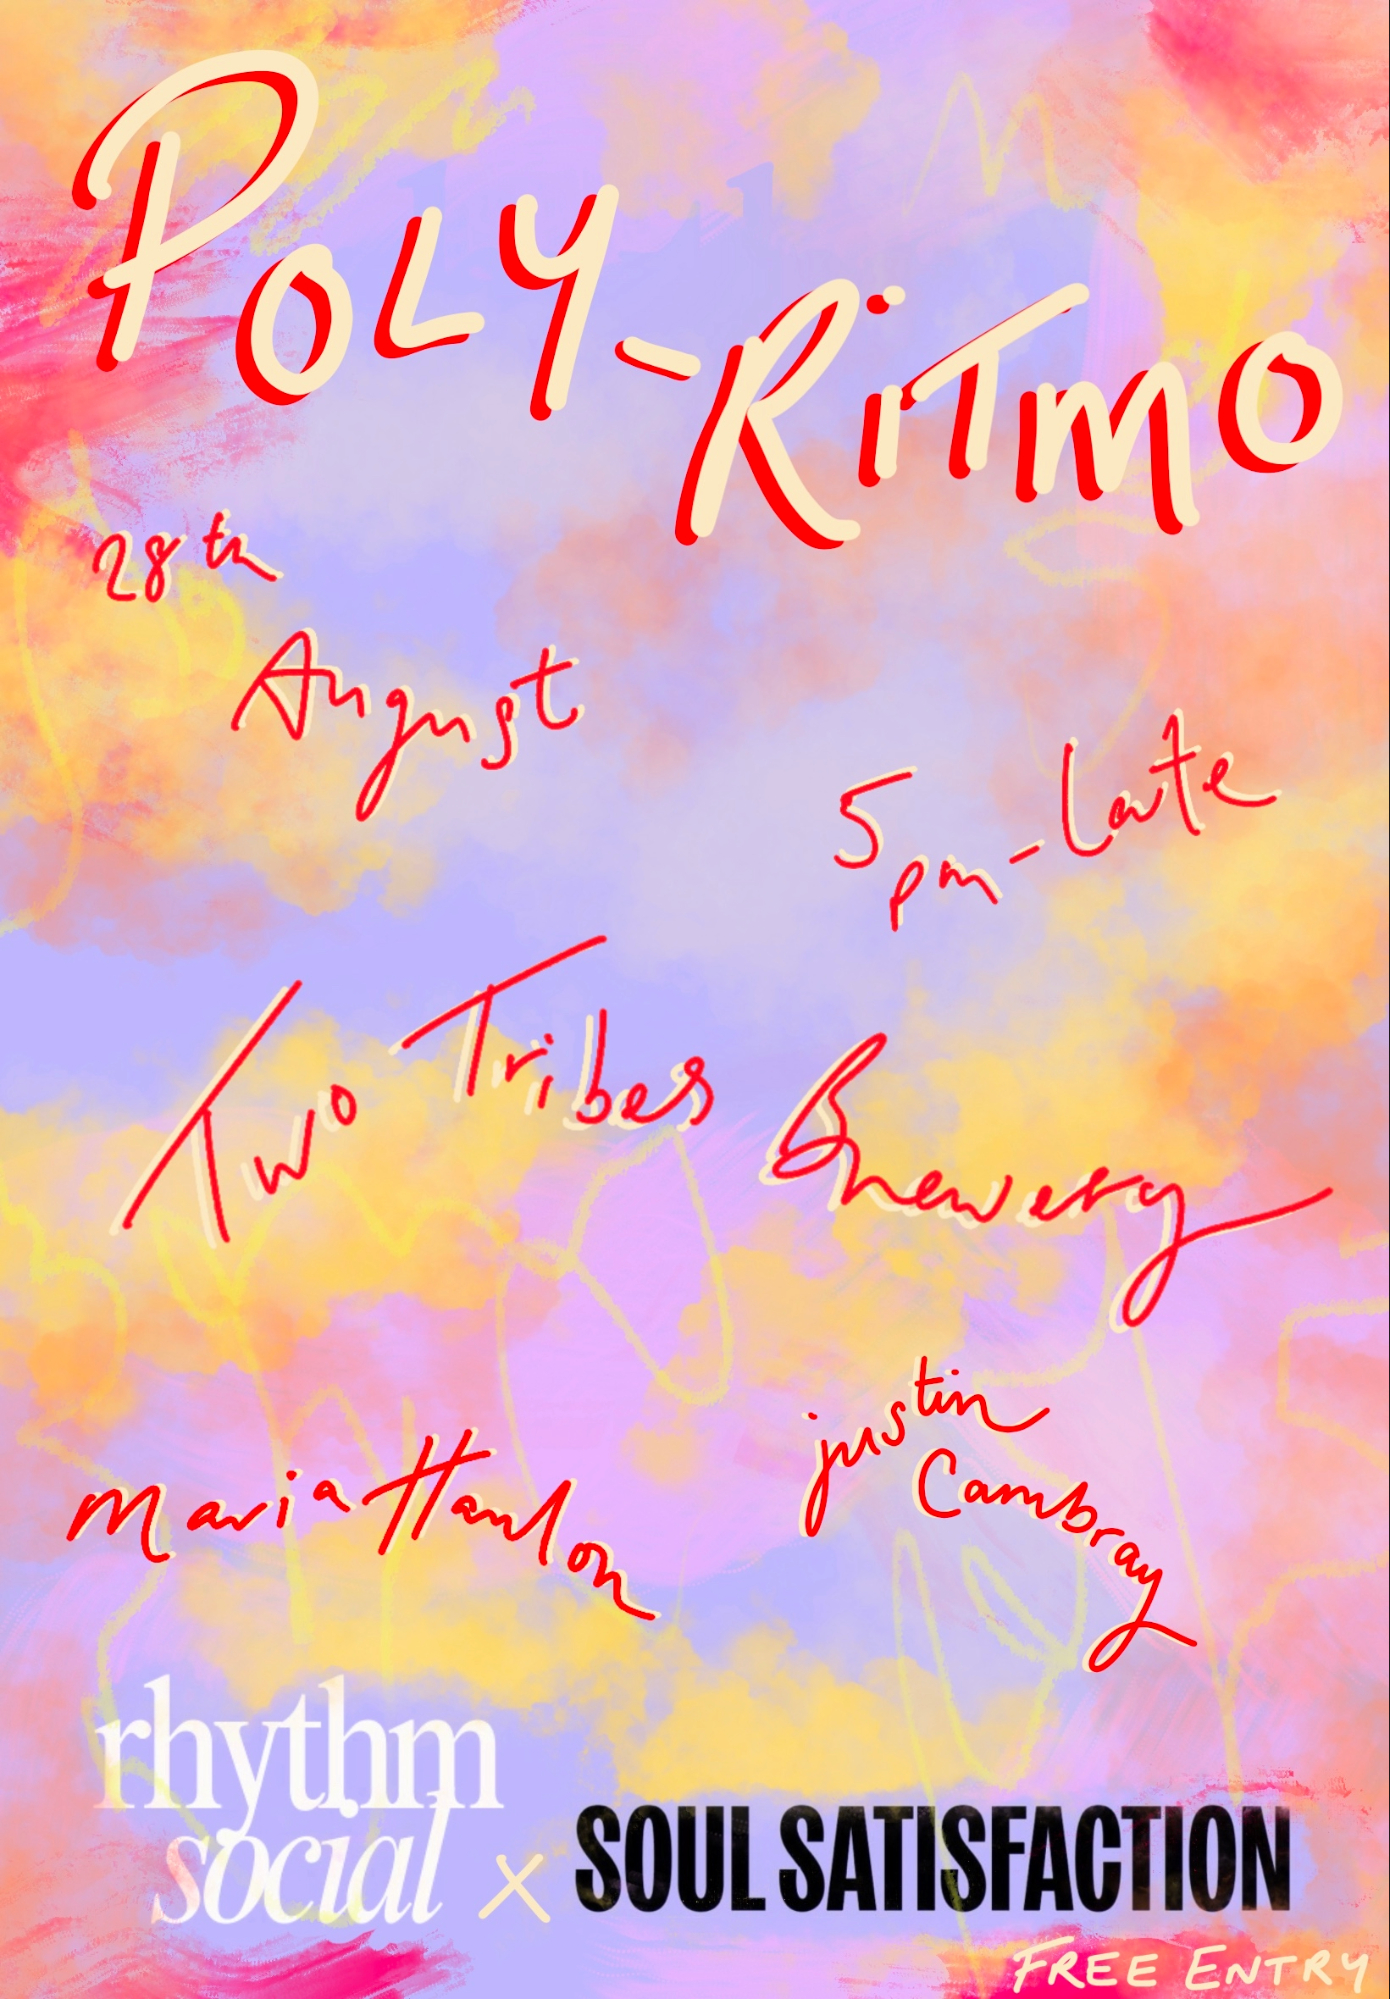 POLY-RiTMO
28th
August
5pm-Late
Two Tribes Brewery
justin
Cambray
Maria Hanlon
rhythm
social x SOUL SATISFACTION
FREE ENTRY